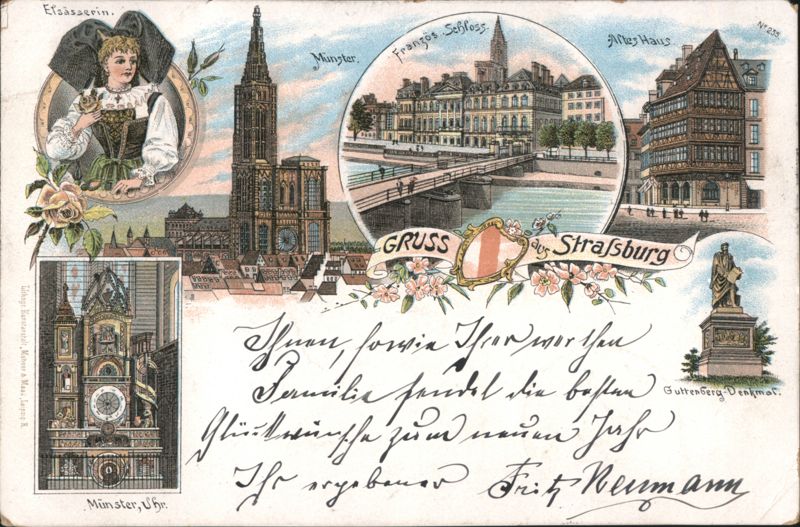 Elsässerin.
Münster.
Französ. Schloss.
Altes Haus.
No 255
GRUSS aus Straßburg
Guttenberg-Denkmal.
Münster, Uhr.
Ihnen, sowie Ihrer werthen
Familie sendet die besten
Glückwünsche zum neuen Jahr
Ihr ergebener Fritz Neumann